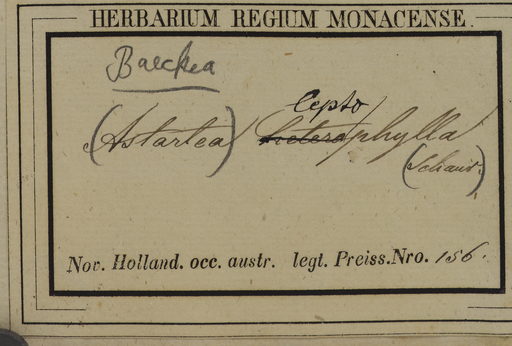 HERBARIUM REGIUM MONACENSE.
Baeckea
lepto
(Astartea) phylla
(Schauer.)
Nov. Holland. occ. austr. legt. Preiss. Nro. 156.